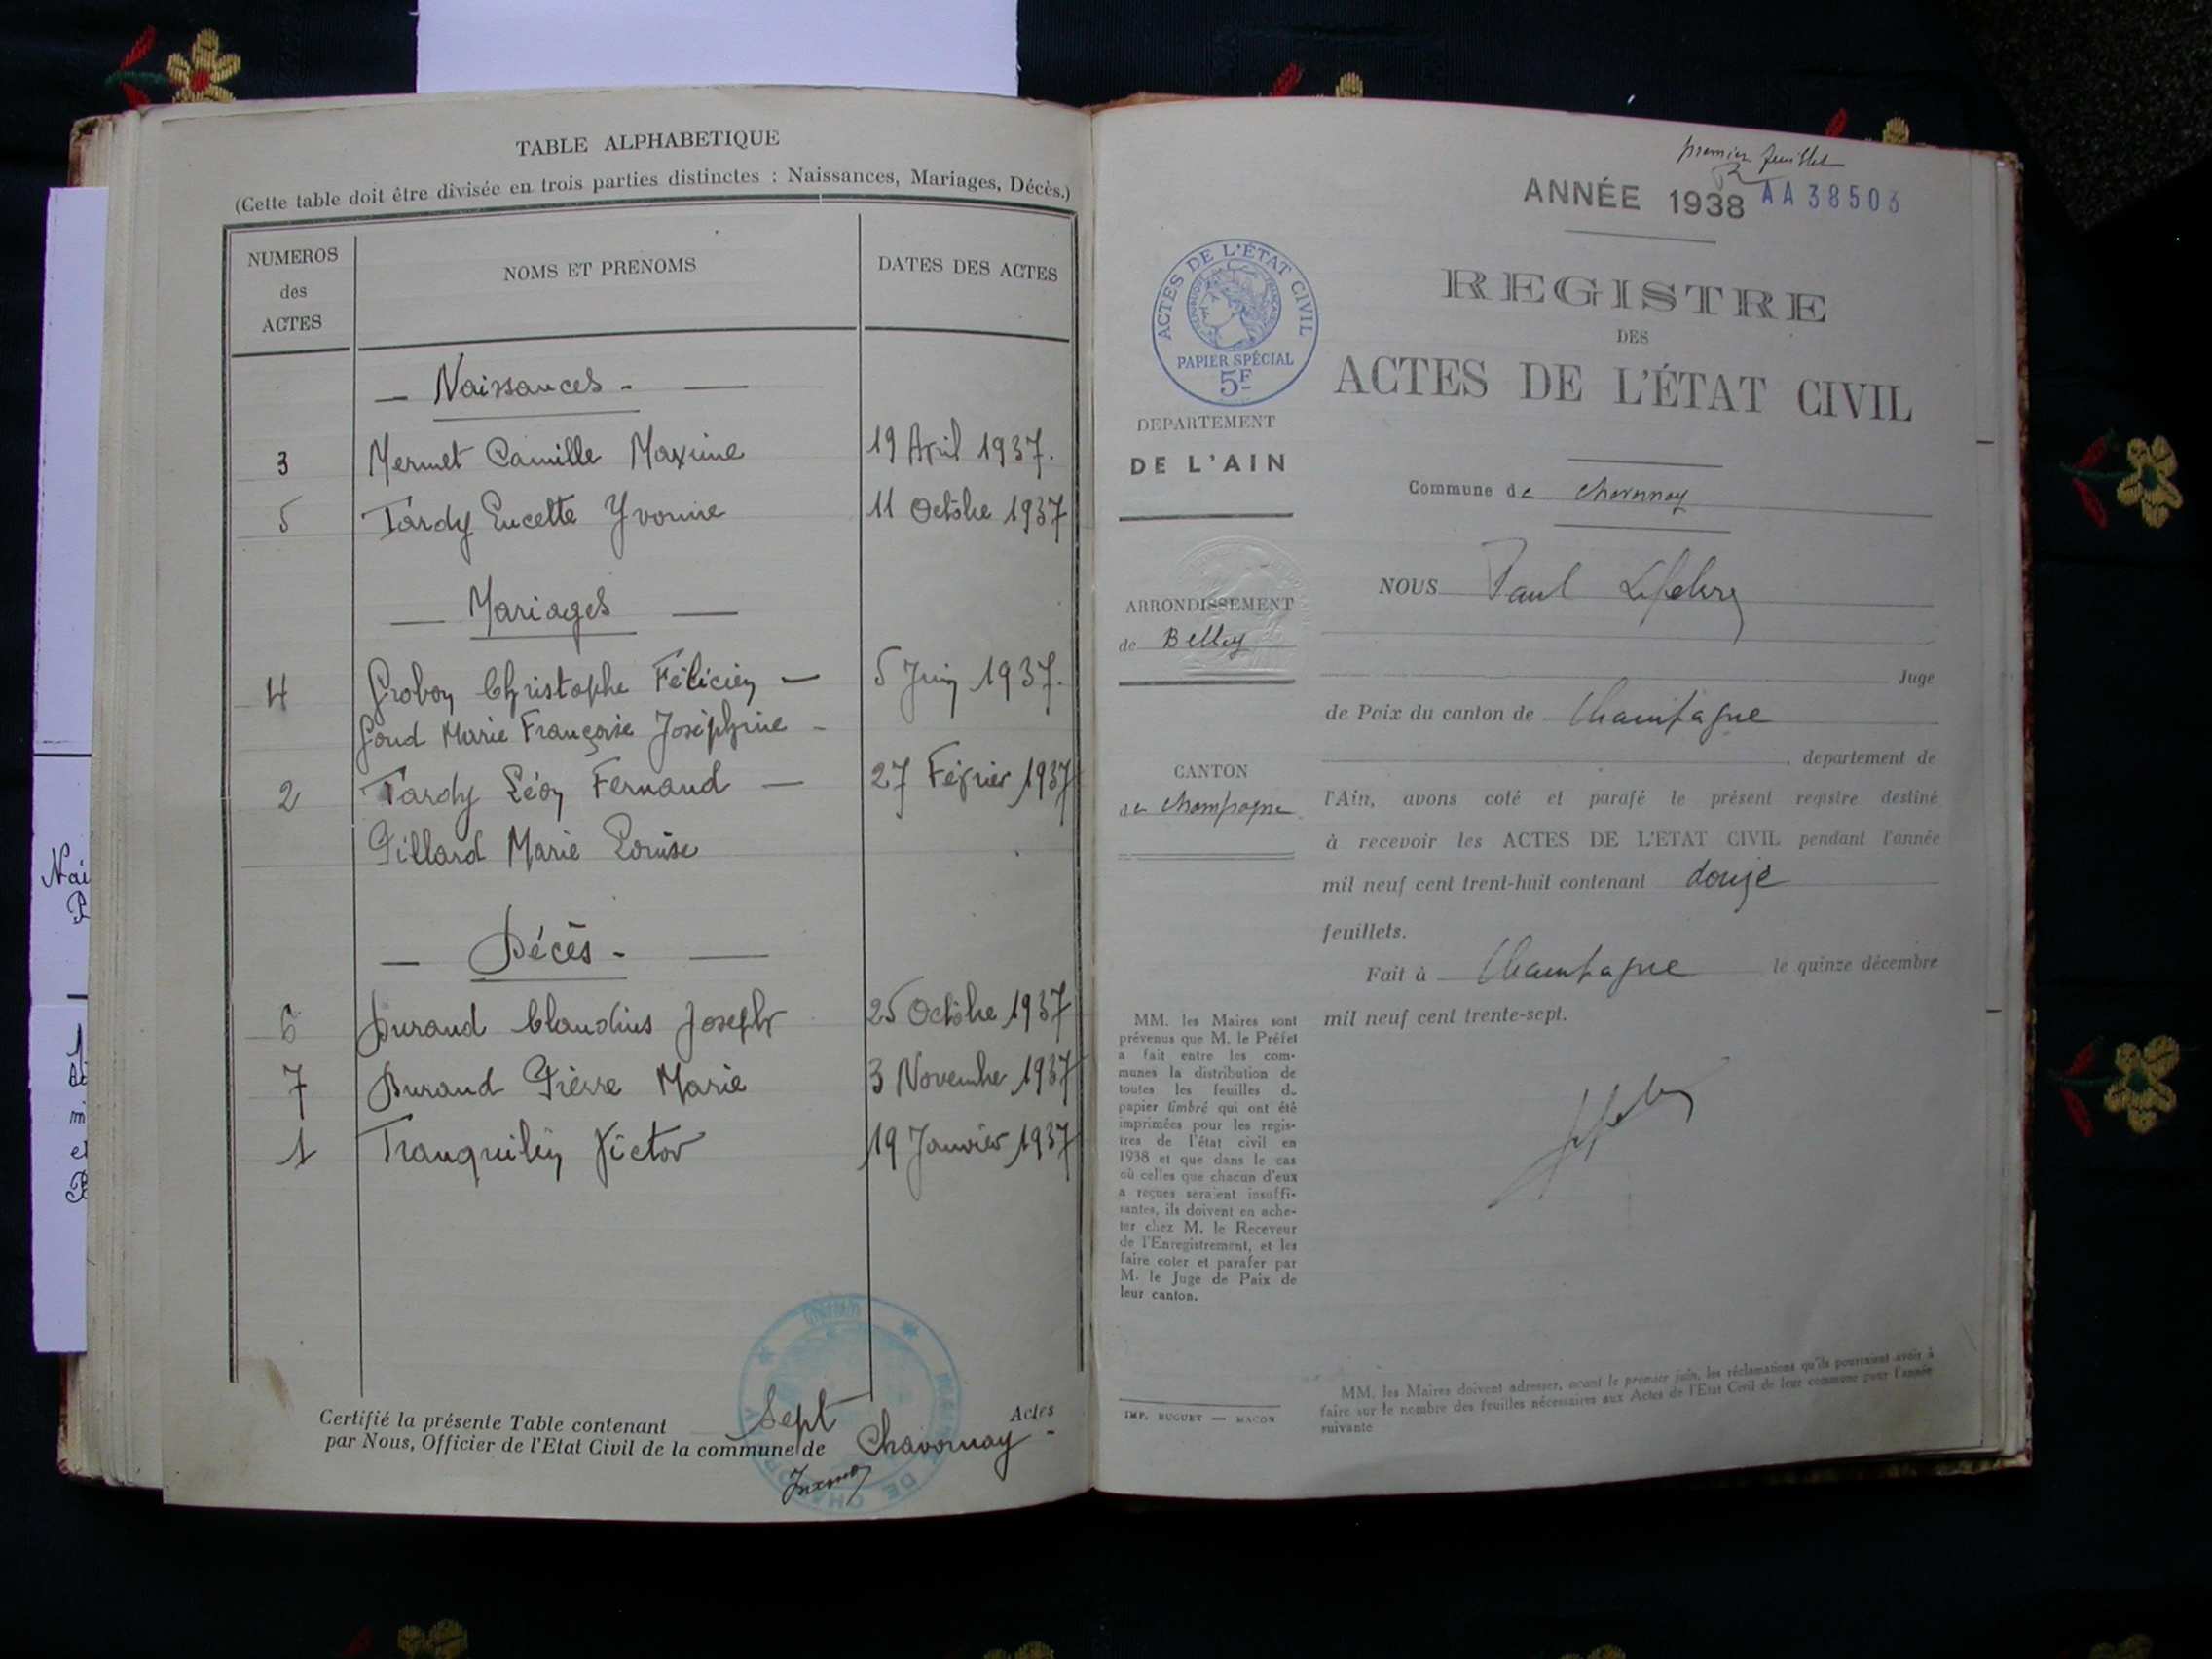 TABLE ALPHABETIQUE
(Cette table doit être divisée en trois parties distinctes : Naissances, Mariages, Décès.)
NUMEROS
des
ACTES
NOMS ET PRENOMS
DATES DES ACTES
— Naissances - —
3 Mermet Camille Maxime 19 Avril 1937.
5 Tardy Lucette Yvonne 11 Octobre 1937
— Mariages —
4 Grobon Christophe Félicien — 5 Juin 1937.
Goud Marie Françoise Joséphine -
2 Tardy Léon Fernand — 27 Février 1937
Pillard Marie Louise
— Décès - —
6 Durand Claudius Joseph 25 Octobre 1937
7 Durand Pierre Marie 3 Novembre 1937
1 Tranquilin Victor 19 Janvier 1937
Certifié la présente Table contenant Sept Actes
par Nous, Officier de l'Etat Civil de la commune de Chavornay -
premier feuillet
ANNÉE 1938 AA38503
ACTES DE L'ÉTAT CIVIL
PAPIER SPÉCIAL
5F
REGISTRE
DES
ACTES DE L'ÉTAT CIVIL
DEPARTEMENT
DE L'AIN
Commune de Chavornay
ARRONDISSEMENT
de Belley
CANTON
de Champagne
NOUS Paul Lefebvre
Juge
de Paix du canton de Champagne
, departement de
l'Ain, avons coté et parafé le présent registre destiné
à recevoir les ACTES DE L'ETAT CIVIL pendant l'année
mil neuf cent trent-huit contenant douze
feuillets.
Fait à Champagne le quinze décembre
mil neuf cent trente-sept.
MM. les Maires sont
prévenus que M. le Préfet
a fait entre les com-
munes la distribution de
toutes les feuilles d.
papier timbré qui ont été
imprimées pour les regis-
tres de l'état civil en
1938 et que dans le cas
où celles que chacun d'eux
a reçues seraient insuffi-
santes, ils doivent en ache-
ter chez M. le Receveur
de l'Enregistrement, et les
faire coter et parafer par
M. le Juge de Paix de
leur canton.
IMP. BUGUET — MACON
MM. les Maires doivent adresser, avant le premier juin, les réclamations qu'ils pourraient avoir à
faire sur le nombre des feuilles nécessaires aux Actes de l'Etat Civil de leur commune pour l'année
suivante